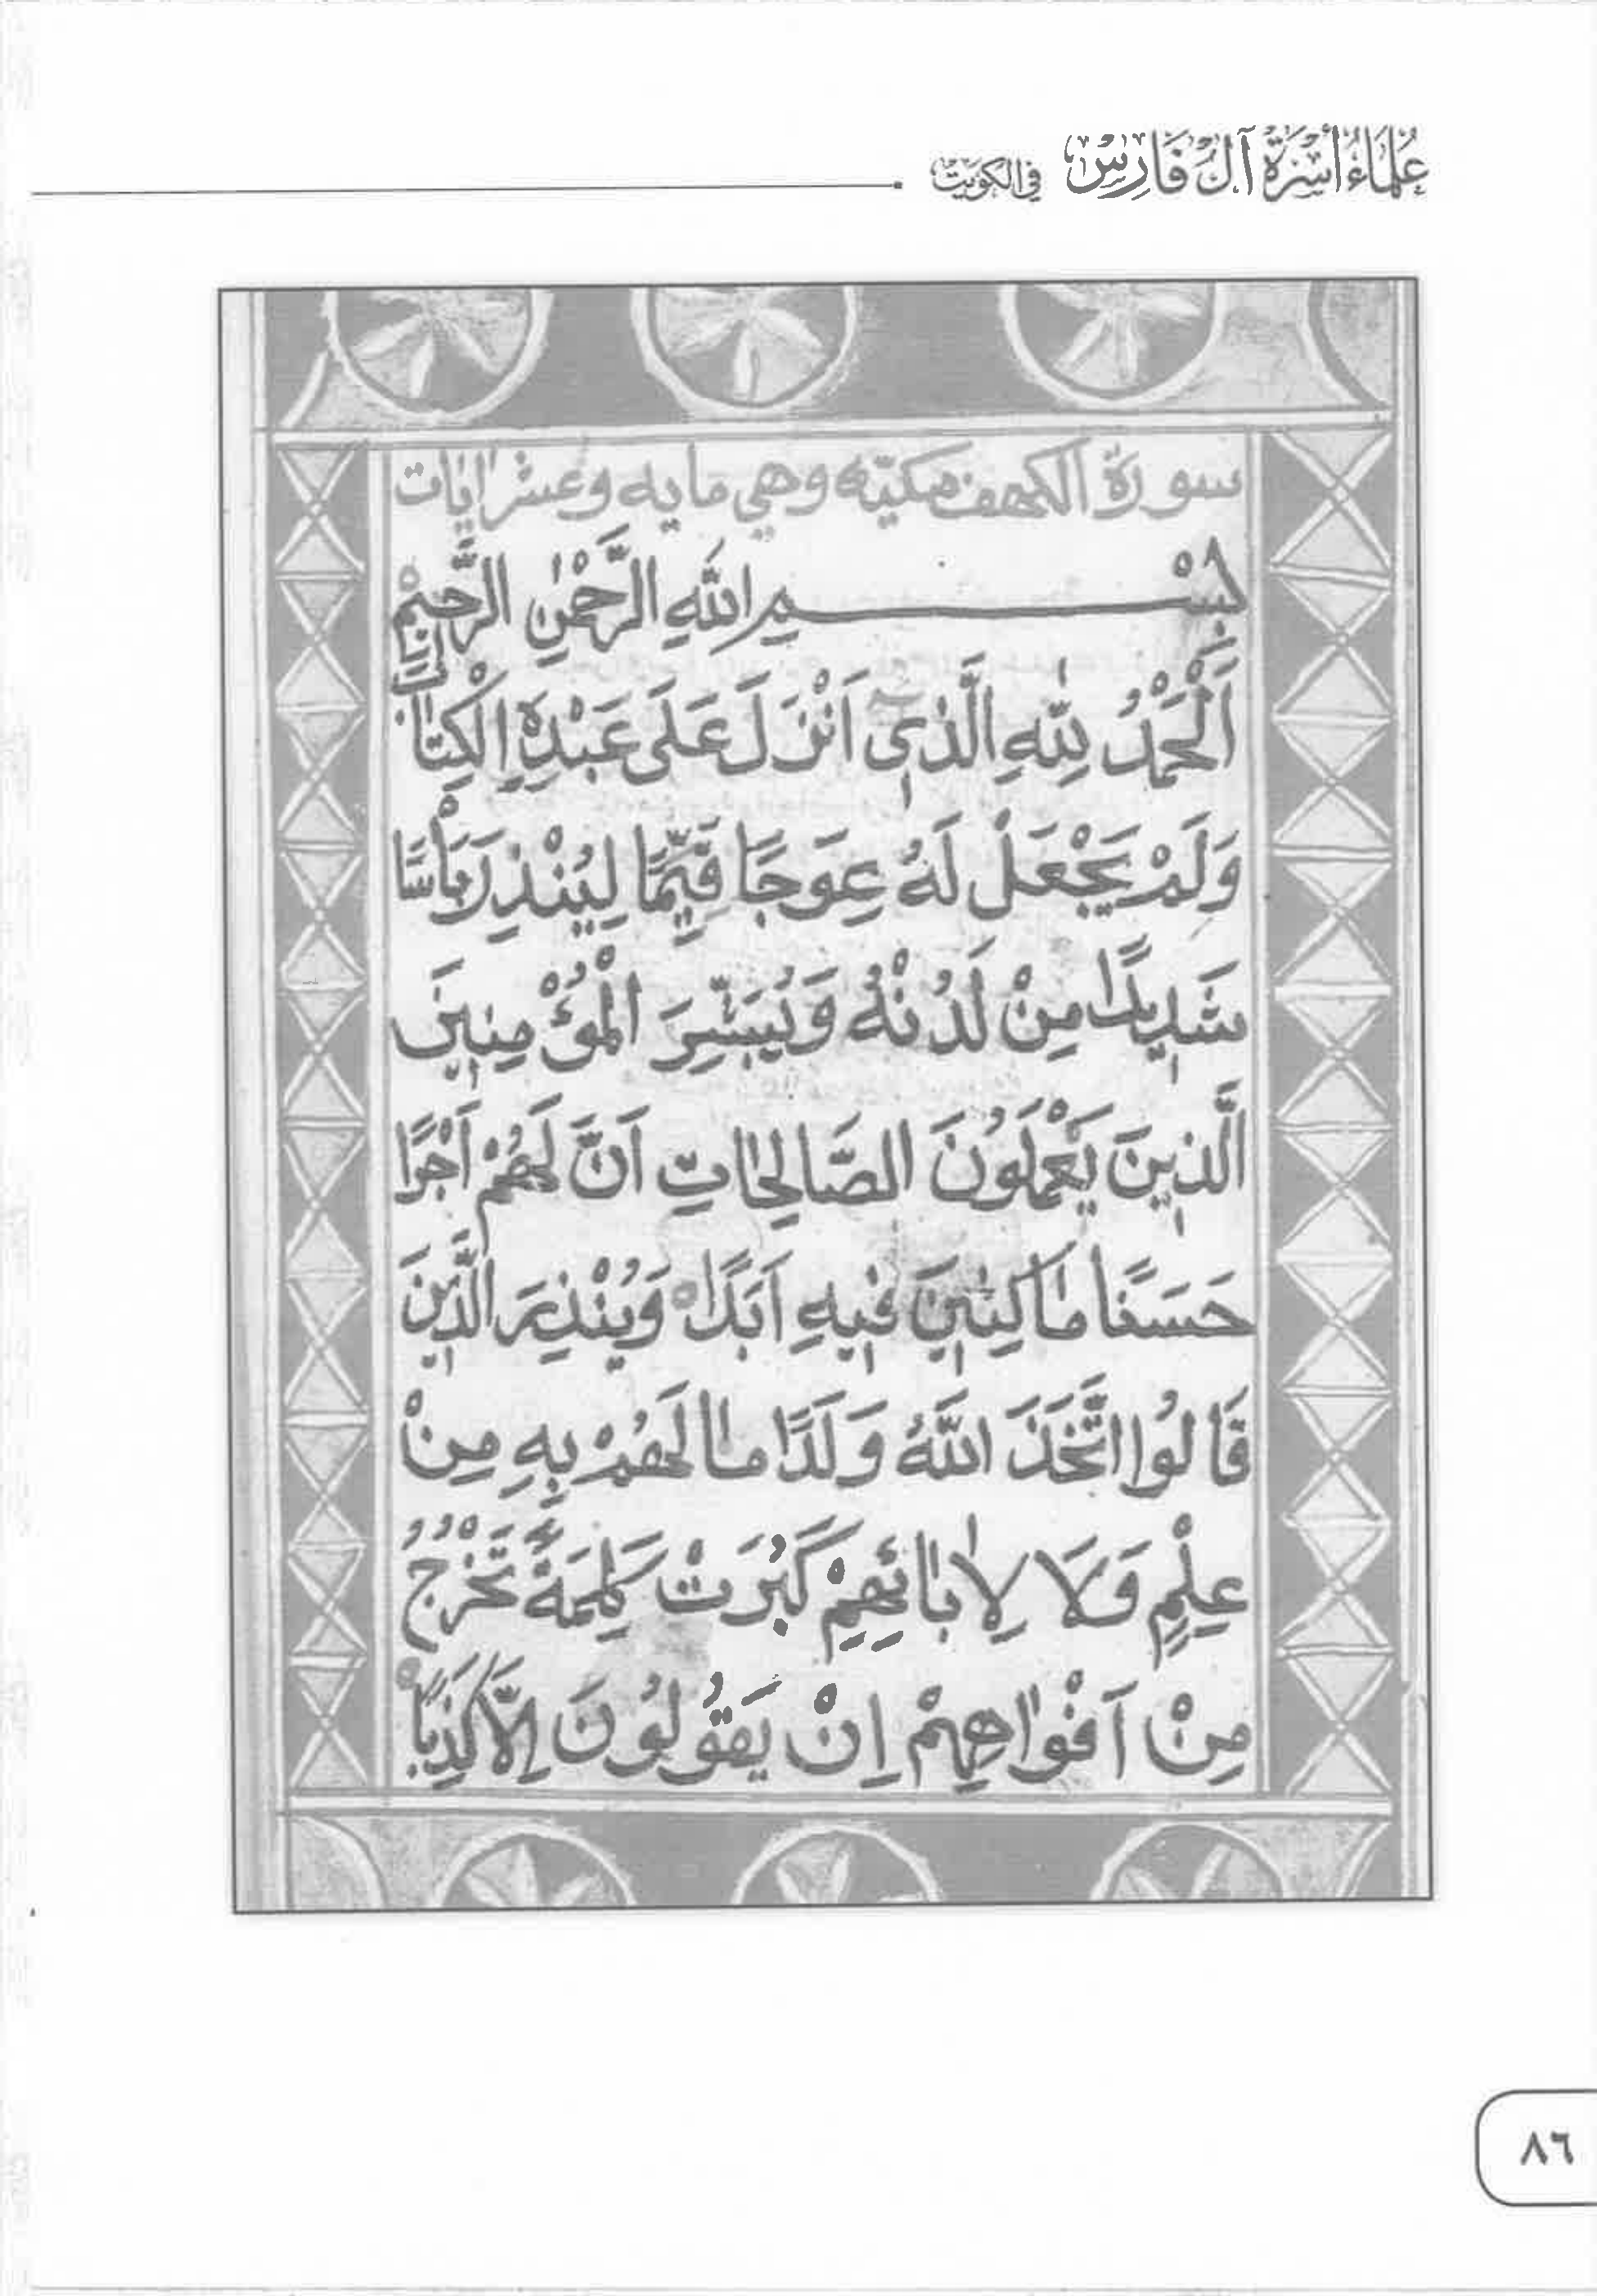 عُلَمَاءُ أُسْرَةِ آلِ فَارِسْ في الكويت
سورة الكهف مكيّه وهي مايه وعشر ايات
بِسْمِ اللّٰهِ الرَّحْمٰنِ الرَّحِيْمِ
اَلْحَمْدُ لِلّٰهِ الَّذٖيٓ اَنْزَلَ عَلَى عَبْدِهِ الْكِتٰابَ
وَلَمْ يَجْعَلْ لَهُ عِوَجًا قَيِّمًا لِيُنْذِرَ بَأْسًا
شَدٖيدًا مِنْ لَدُنْهُ وَيُبَشِّرَ الْمُؤْمِنٖينَ
الَّذٖينَ يَعْمَلُونَ الصَّالِحٰاتِ اَنَّ لَهُمْ اَجْرًا
حَسَنًا مٰاكِثٖينَ فٖيهِ اَبَدًا وَيُنْذِرَ الَّذٖينَ
قَالُوا اتَّخَذَ اللّٰهُ وَلَدًا مٰا لَهُمْ بِهِ مِنْ
عِلْمٍ وَلَا لِاٰبٰائِهِمْ كَبُرَتْ كَلِمَةً تَخْرُجُ
مِنْ اَفْوٰاهِهِمْ اِنْ يَقُولُونَ اِلَّا كَذِبًا
٨٦